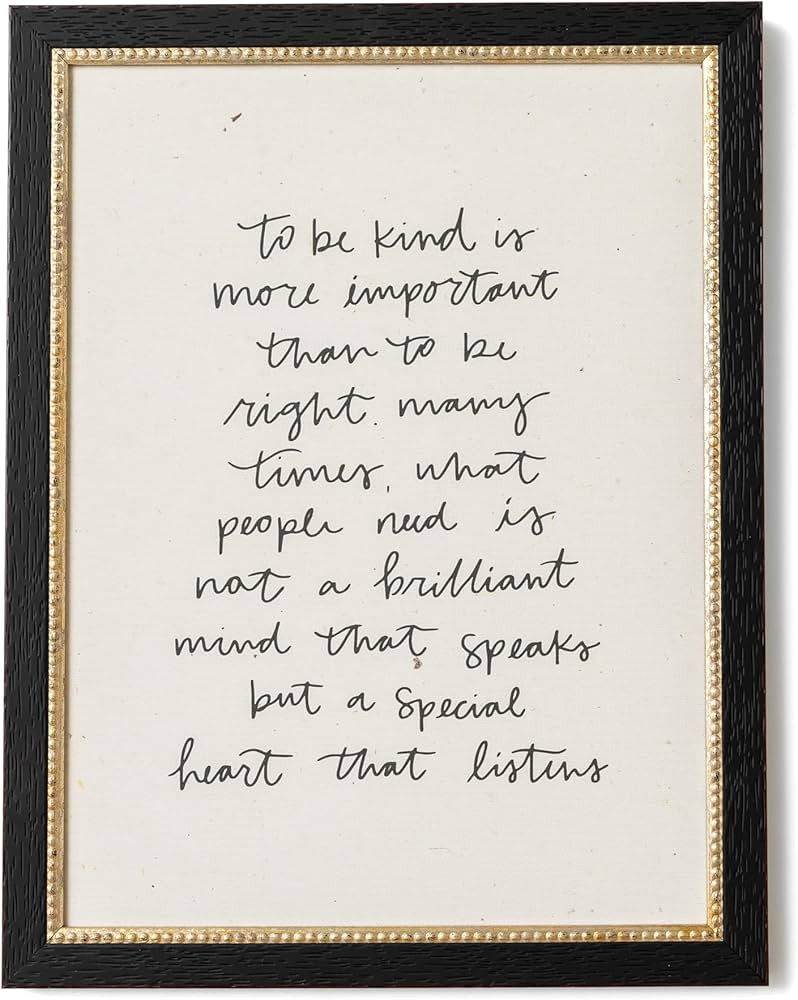 to be kind is
more important
than to be
right. many
times, what
people need is
not a brilliant
mind that speaks
but a special
heart that listens